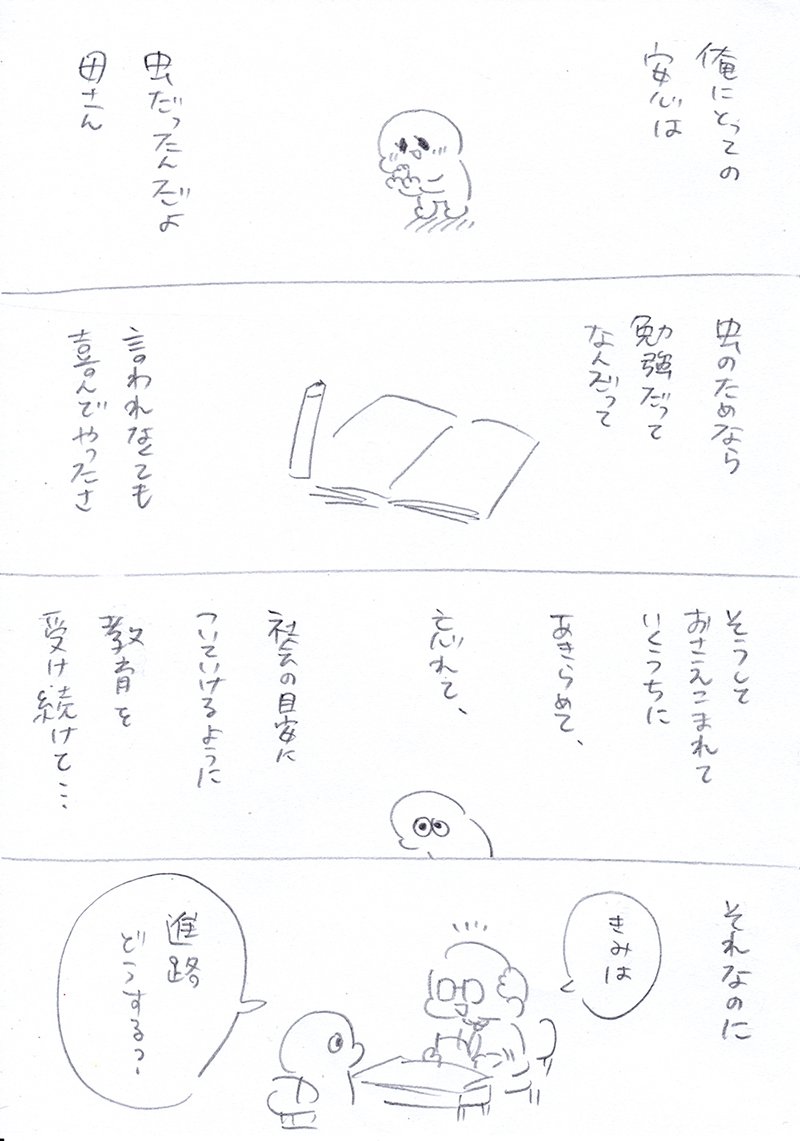 俺にとっての
安心は
虫だったんだよ
母さん
虫のためなら
勉強だって
なんだって
言われなくても
喜んでやったさ
そうして
おさえこまれて
いくうちに
あきらめて、
忘れて、
社会の目安に
ついていけるように
教育を
受け続けて…
それなのに
きみは
進路
どうする?